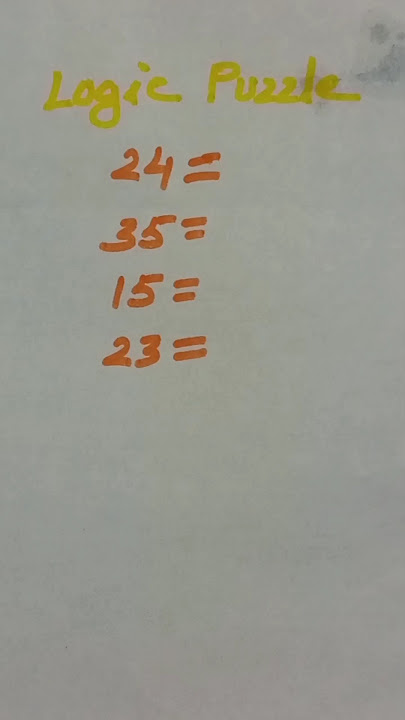 Logic Puzzle
24=
35=
15=
23=